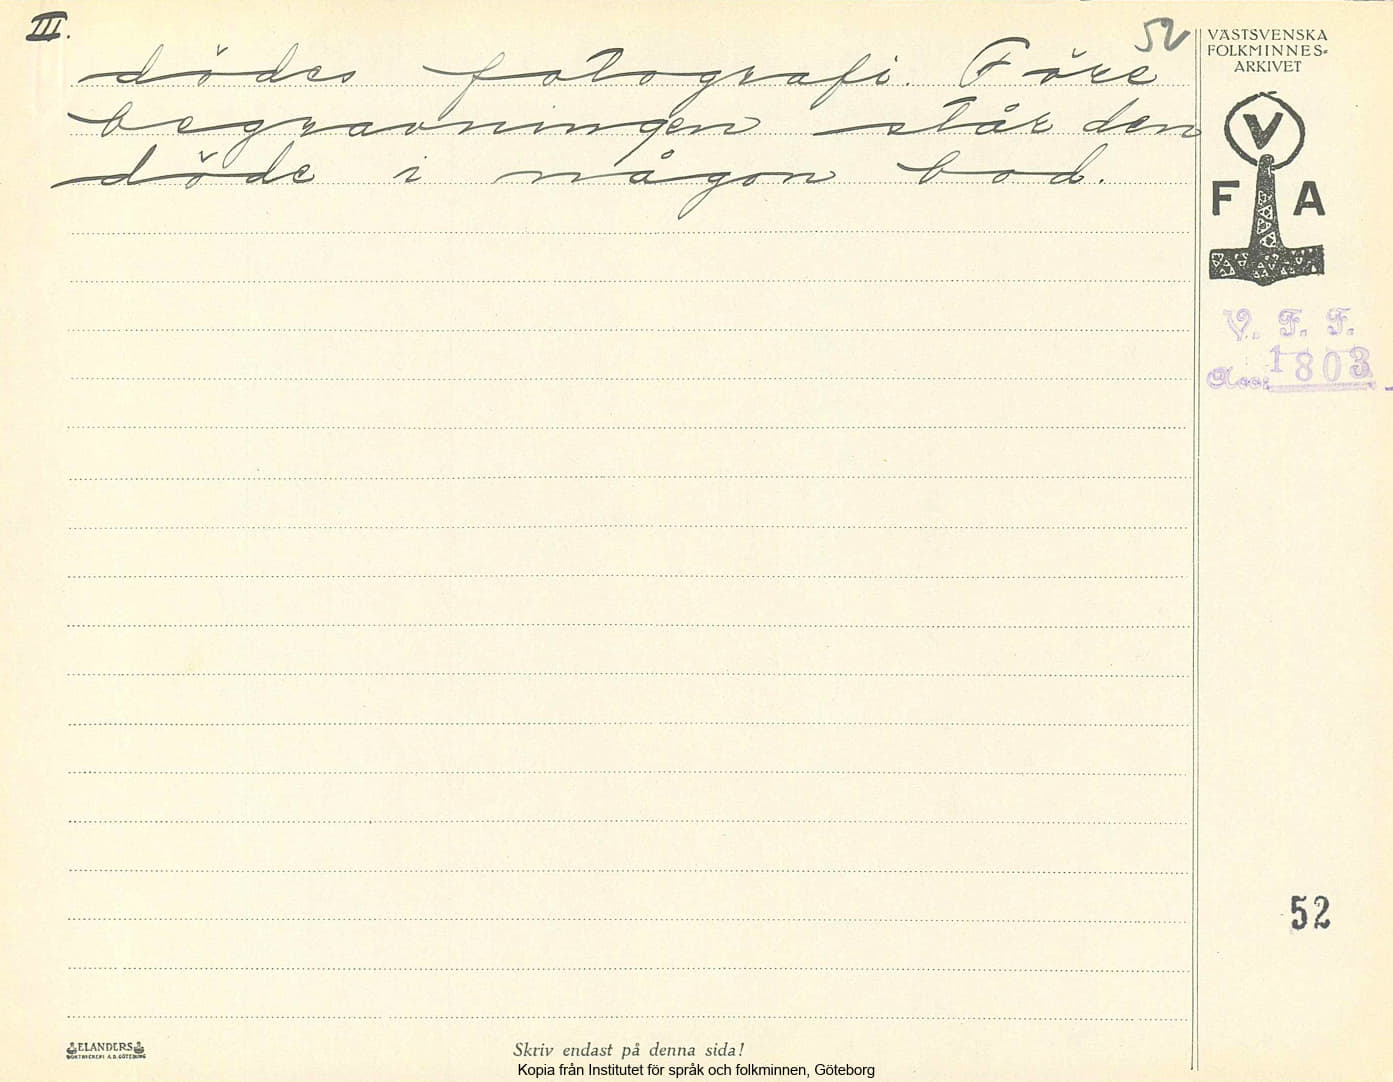 III.
52
dödes fotografi. Före
begravningen står den
döde i någon bod.
VÄSTSVENSKA
FOLKMINNES-
ARKIVET
V
F A
V. F. F.
Acc. 1803
52
ELANDERS
BOKTRYCKERI A.B. GÖTEBORG
Skriv endast på denna sida!
Kopia från Institutet för språk och folkminnen, Göteborg